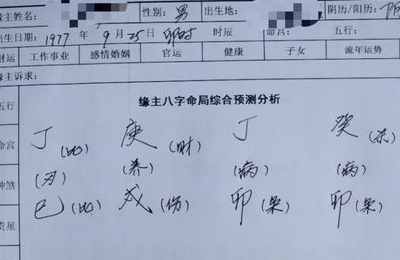 缘主姓名: 性别: 男 出生地: 阴历/阳历:
出生日期: 1977 年 9 月 25 日 卯时 时运 命宫: 五行:
财运 工作事业 感情婚姻 官运 健康 子女 流年运势
缘主诉求:
五行 缘主八字命局综合预测分析
命宫 丁(比) 庚(财) 丁 癸(杀)
神煞 (养) (病) (病)
贵星 巳(比) 戌(伤) 卯(枭) 卯(枭)